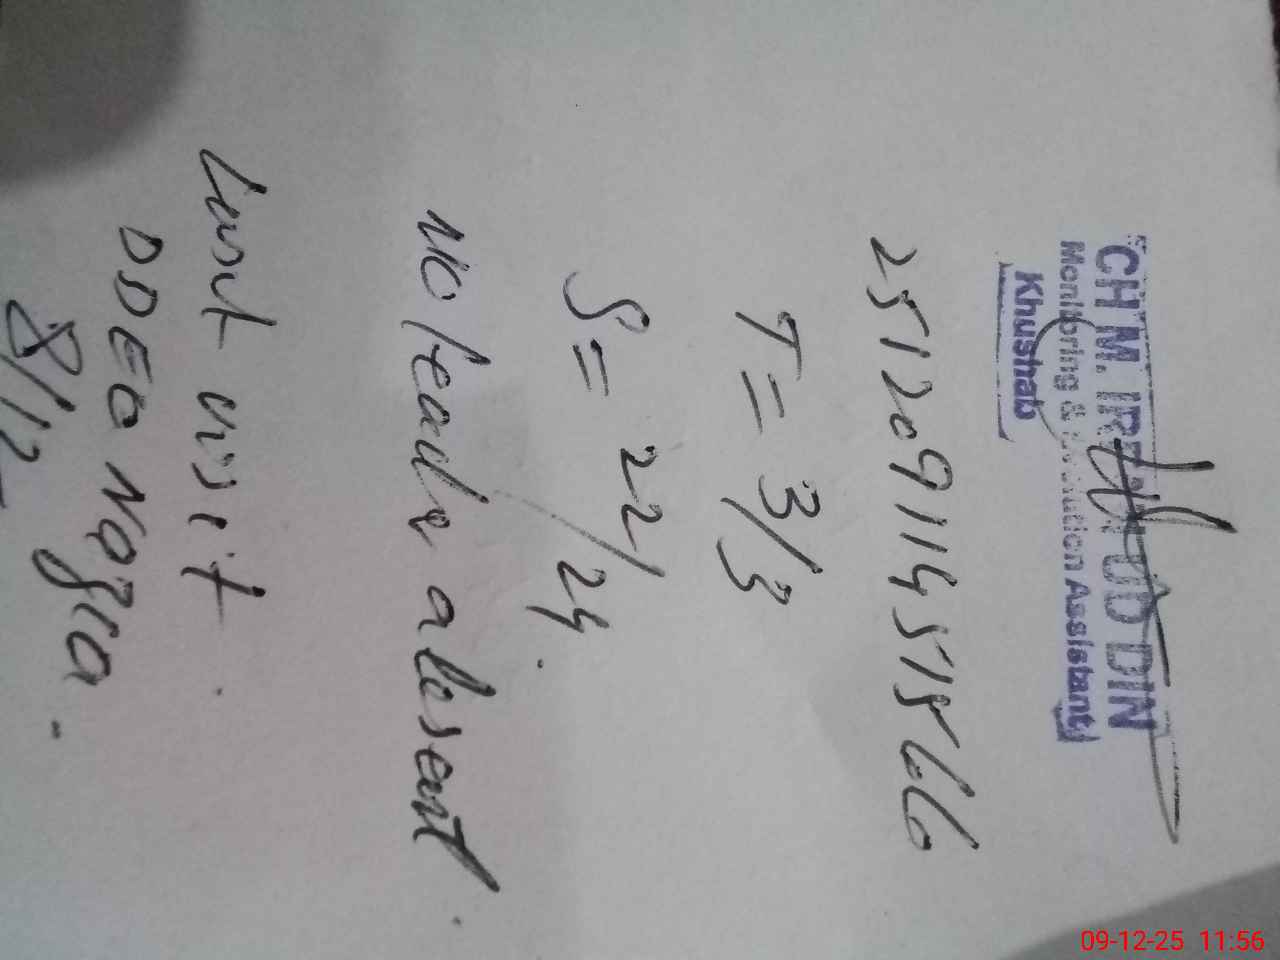 CH M. IRFAN UD DIN
Monitoring & Evalution Assistant
Khushab
25120911451566
T = 3/3
S = 22/24.
No teachr absent.
Last visit.
DDEO
8/12
09-12-25 11:56